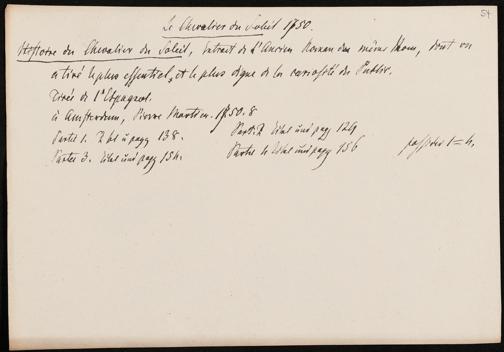 54
Le Chevalier du Soleil 1750.
Histoire du Chevalier du Soleil, Extrait de l'Ancien Roman du même Nom, dont on
a tiré le plus essentiel, et le plus digne de la curiosité du Public.
Tirée de l'Espagnol.
à Amsterdam, Pierre Mortier. 1750. 8
Partie 1. 2 bl u pagg 138. Partie 2 Titel und pagg 124
Partie 3. Titel und pagg 154. Partie 4 Titel und pagg 156 1=4.